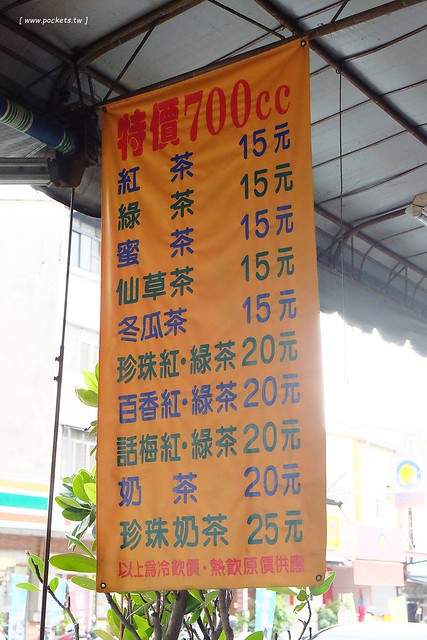 [ www.pockets.tw ]
特價700cc
紅茶 15元
綠茶 15元
蜜茶 15元
仙草茶 15元
冬瓜茶 15元
珍珠紅·綠茶 20元
百香紅·綠茶 20元
話梅紅·綠茶 20元
奶茶 20元
珍珠奶茶 25元
以上為冷飲價·熱飲原價供應